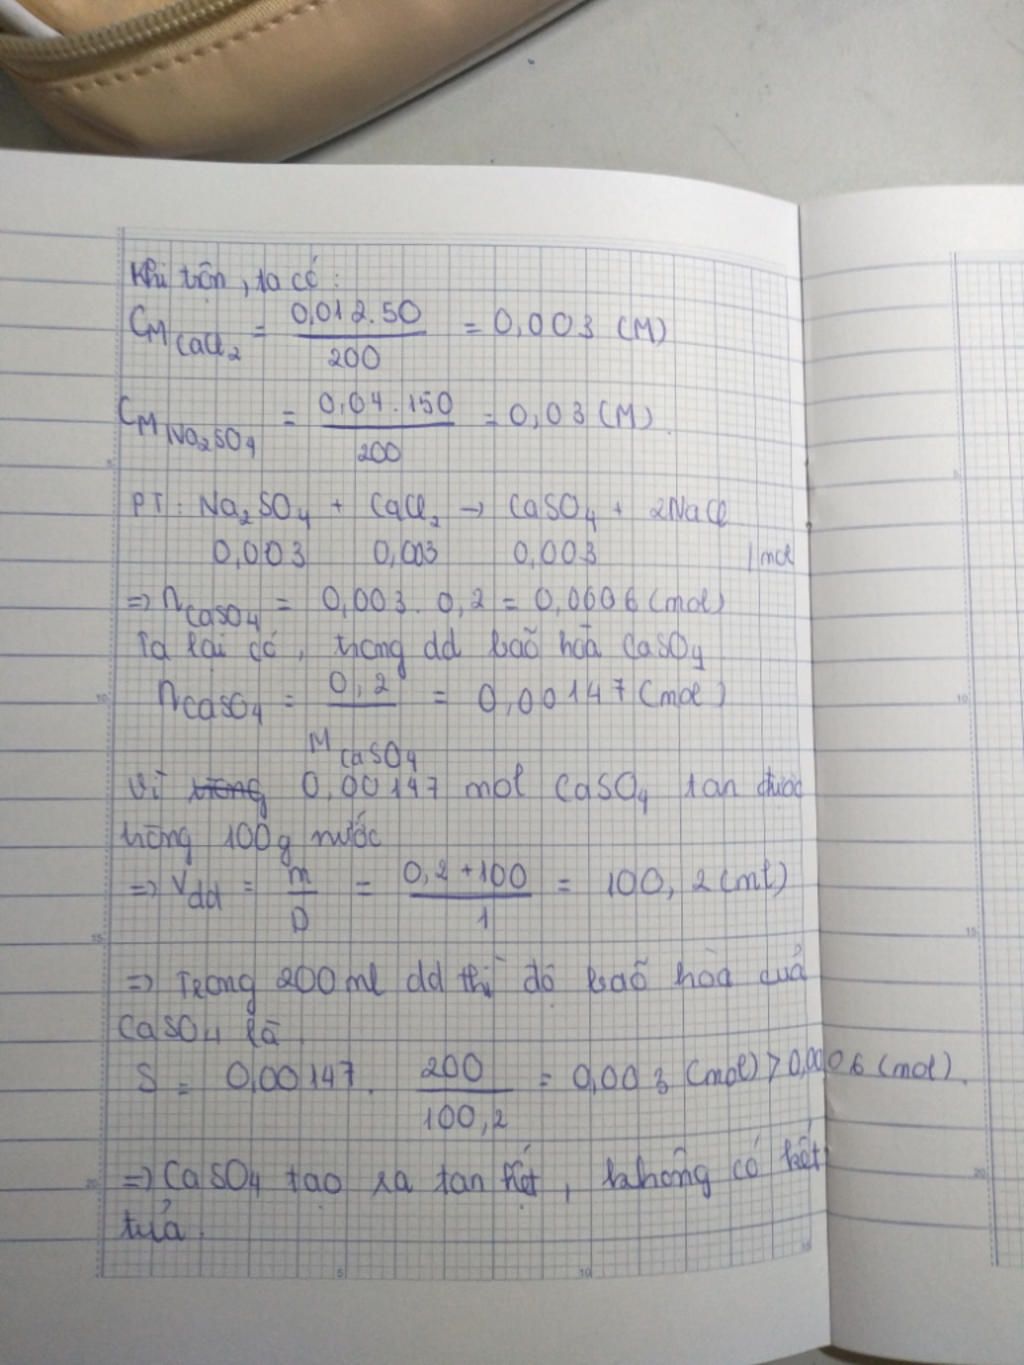 Khi trộn, ta có:
CM CaCl2 = 0,012.50 / 200 = 0,003 (M)
CM Na2SO4 = 0,04.150 / 200 = 0,03 (M).
PT: Na2SO4 + CaCl2 → CaSO4 + 2NaCl
0,003 0,003 0,003 / mol
=> nCaSO4 = 0,003. 0,2 = 0,0006 (mol)
Ta lại có, trong dd bão hòa CaSO4
nCaSO4 = 0,2 / MCaSO4 = 0,00147 (mol)
Vì trong 0,00147 mol CaSO4 tan được
trong 100g nước
=> Vdd = m / D = 0,2+100 / 1 = 100,2 (ml)
=> Trong 200ml dd thì độ bão hòa của
CaSO4 là
S = 0,00147. 200 / 100,2 = 0,003 (mol) > 0,0006 (mol).
=> CaSO4 tạo ra tan hết, không có kết
tủa.